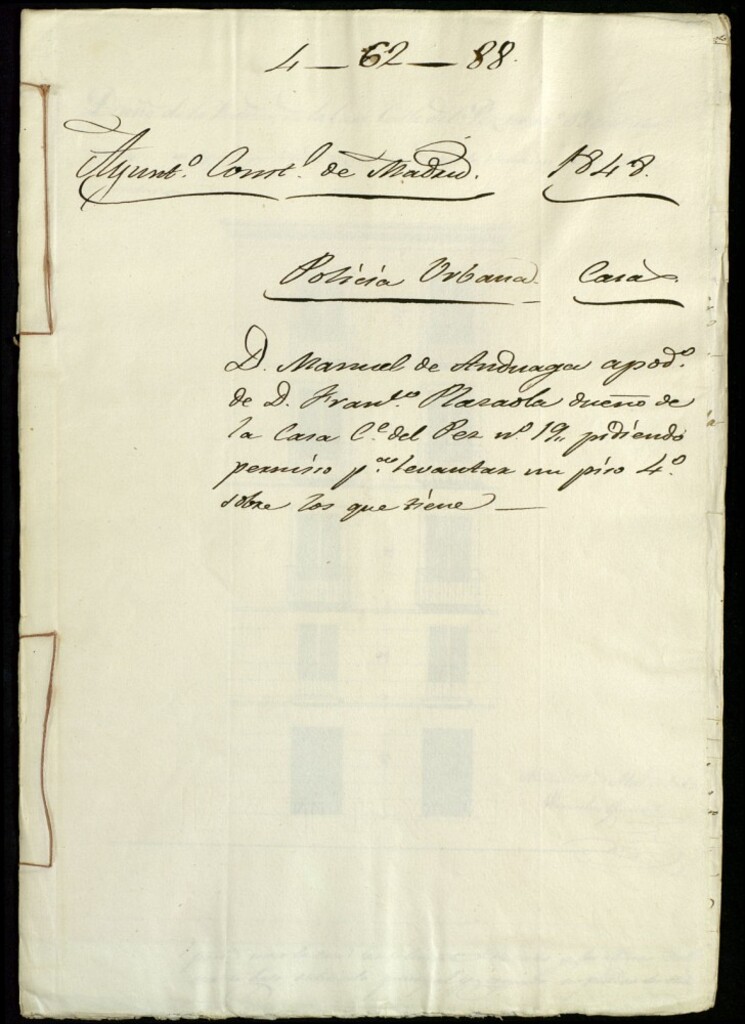 4 — 62 — 88.
Ayunt.º Const.l de Madrid. 1848.
Policia Urbana. Casas.
D. Manuel de Anduaga apod.º
de D. Fran.co Plazaola dueño de
la Casa C.e del Pez nº 19,, pidiendo
permiso p.a levantar un piso 4.º
sobre los que tiene —